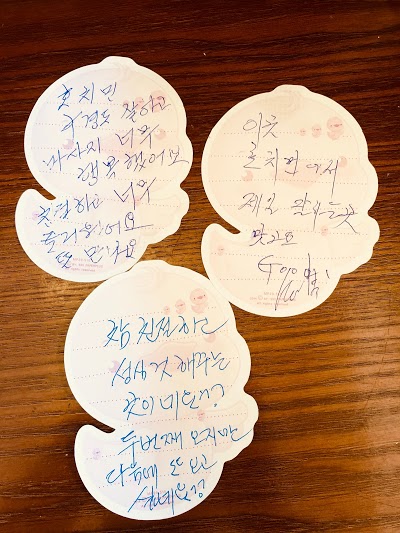 호치민
구경도 잘하고
마사지 너무
행복했어요
친절하고 너무
즐거웠어요
또 만나요
이곳
호치민에서
제일 잘하는곳
맞아요
참 친절하고
성심껏 해주는
곳이
두번째 오지만
다음에 또 오고